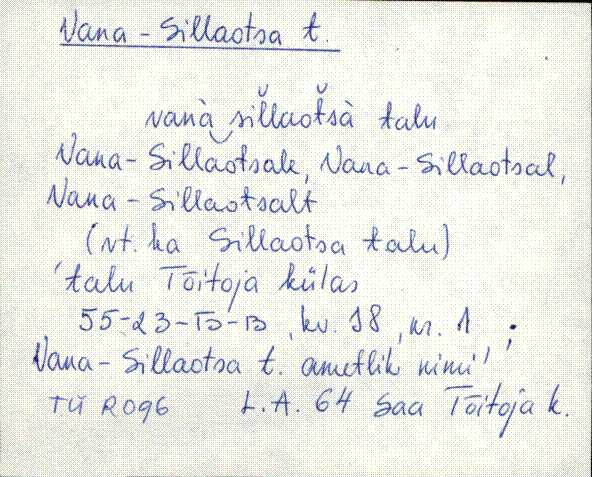 Vana-Sillaotsa t.
vanà sil̆laot̆sà talu
Vana-Sillaotsale, Vana-Sillaotsal,
Vana-Sillaotsalt
(vt. ka Sillaotsa talu)
'talu Tõitoja külas
55-23-Б-В, kv. 18, nr. 1 ;
Vana-Sillaotsa t. ametlik nimi'
TÜ R096 L.A. 64 Saa Tõitoja k.